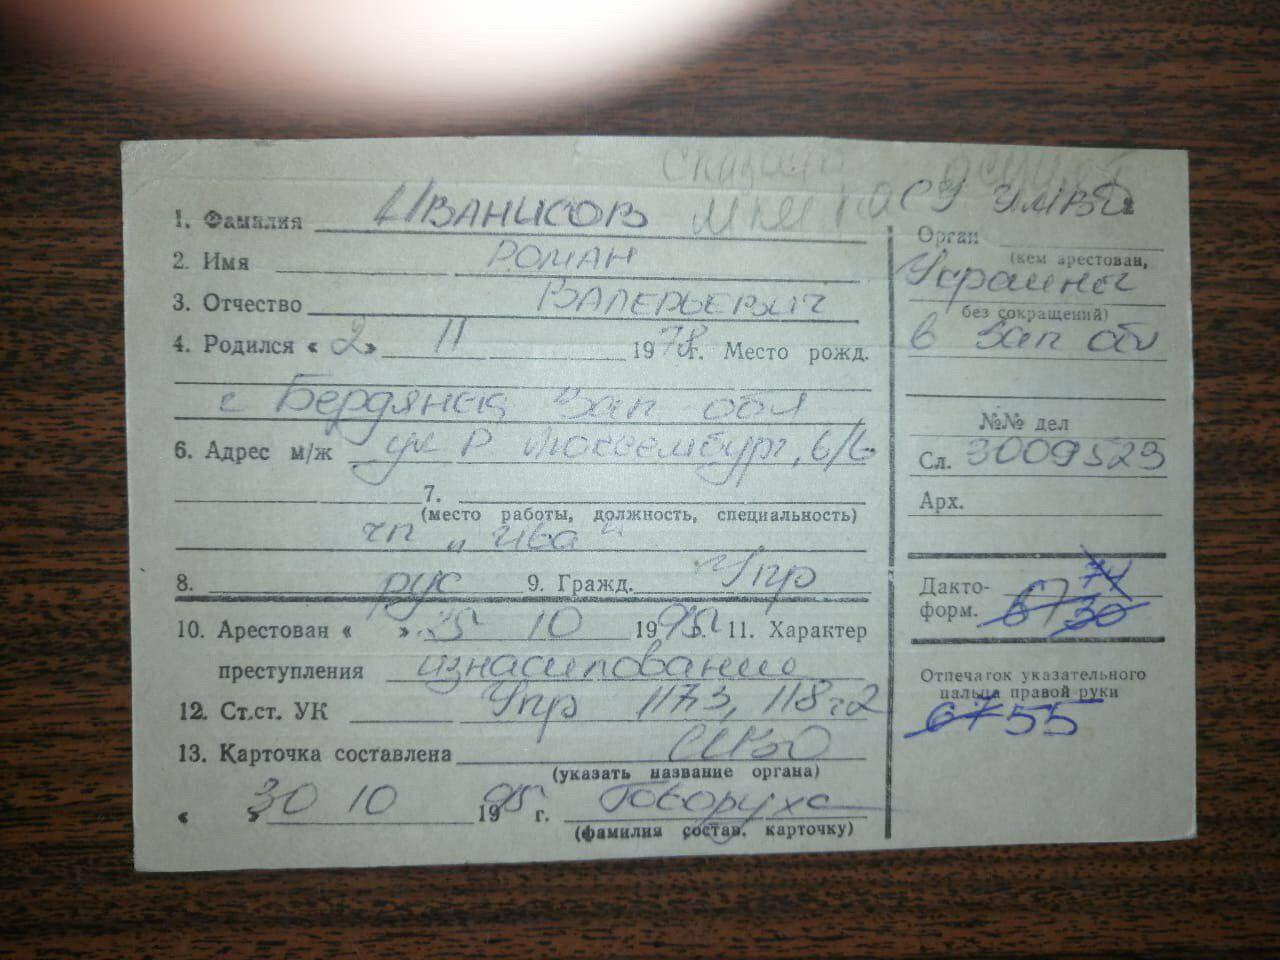 1. Фамилия Иванисов
2. Имя Роман
3. Отчество Валерьевич
4. Родился « 2 » 11 1978 г. Место рожд.
г Бердянск Зап обл
6. Адрес м/ж ул Р. Люксембург, 6/6
7.
(место работы, должность, специальность)
чп "Ива"
8. рус 9. Гражд. Укр
10. Арестован « » 25 10 1995 г. 11. Характер
преступления изнасилование
12. Ст.ст. УК Укр 117 3, 118 ч 2
13. Карточка составлена
(указать название органа)
« 30 » 10 1995 г. Говоруха
(фамилия состав. карточку)
СУ УМВД
Орган
(кем арестован,
Украины
без сокращений)
в Зап обл
№№ дел
Сл. 3009523
Арх.
Дакто-
форм.
Отпечаток указательного
пальца правой руки
67 55